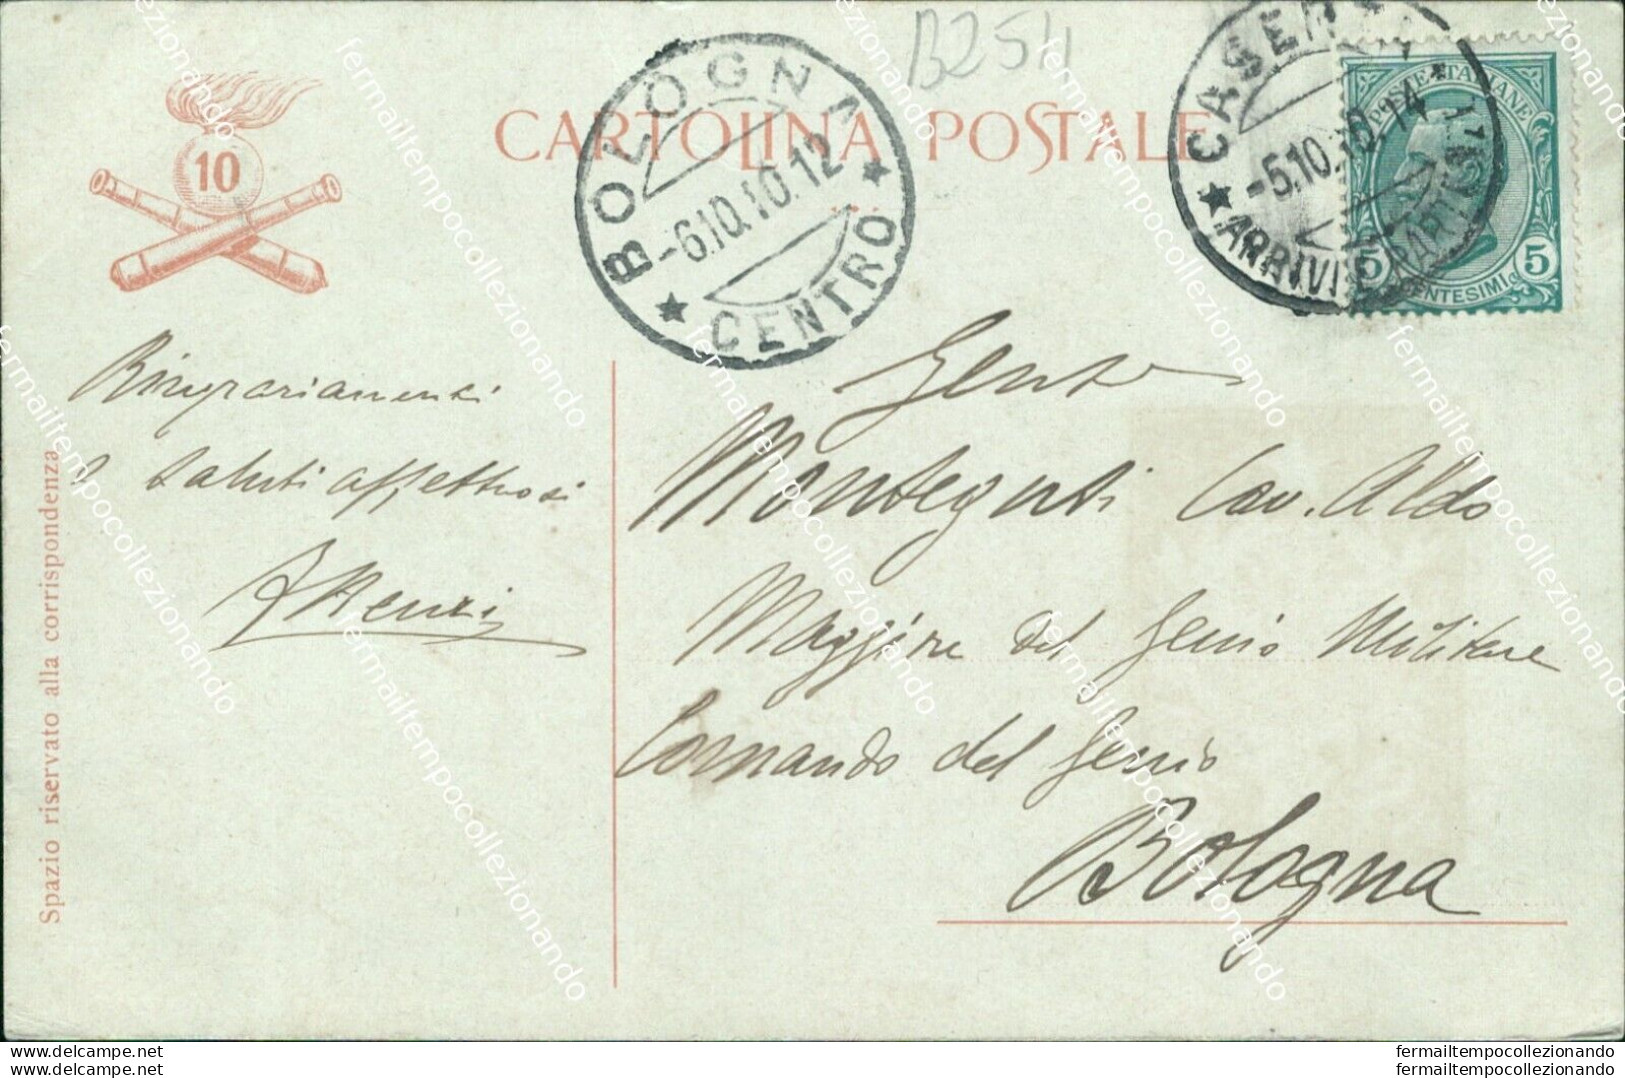 B254
CARTOLINA POSTALE
10
BOLOGNA
-6.10.10.12
★ CENTRO ★
★ CASERTA
-5.10.10.14
ARRIVI E PARTENZE
POSTE ITALIANE
5 CENTESIMI 5
Ringraziamenti
e saluti affettuosi
Renzi
Spazio riservato alla corrispondenza
Monteguti Cav. Aldo
Maggiore del Genio Militare
Comando del Genio
Bologna
fermailtempocollezionando
www.delcampe.net
www.delcampe.net
fermailtempocollezionando
fermailtempocollezionando